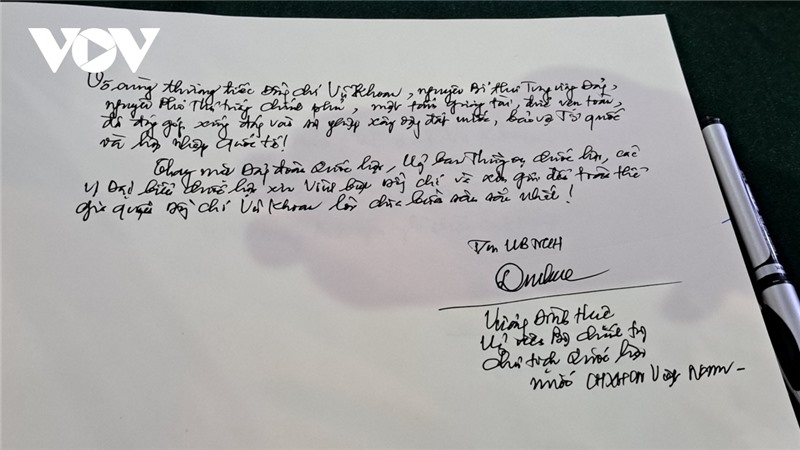 VOV
Vô cùng thương tiếc Đồng chí Vũ Khoan, nguyên Bí thư Trung ương Đảng,
nguyên Phó Thủ tướng Chính phủ, một tấm gương tài, đức vẹn toàn,
đã đóng góp xứng đáng vào sự nghiệp xây dựng đất nước, bảo vệ Tổ quốc
và hội nhập Quốc tế!
Thay mặt Đảng đoàn Quốc hội, Uỷ ban Thường vụ Quốc hội, các
vị Đại biểu Quốc hội xin Vĩnh biệt Đồng chí và xin gửi đến toàn thể
gia quyến Đồng chí Vũ Khoan lời chia buồn sâu sắc nhất!
TM UBTVQH
Vương Đình Huệ
Uỷ viên Bộ Chính trị
Chủ tịch Quốc hội
nước CHXHCN Việt Nam